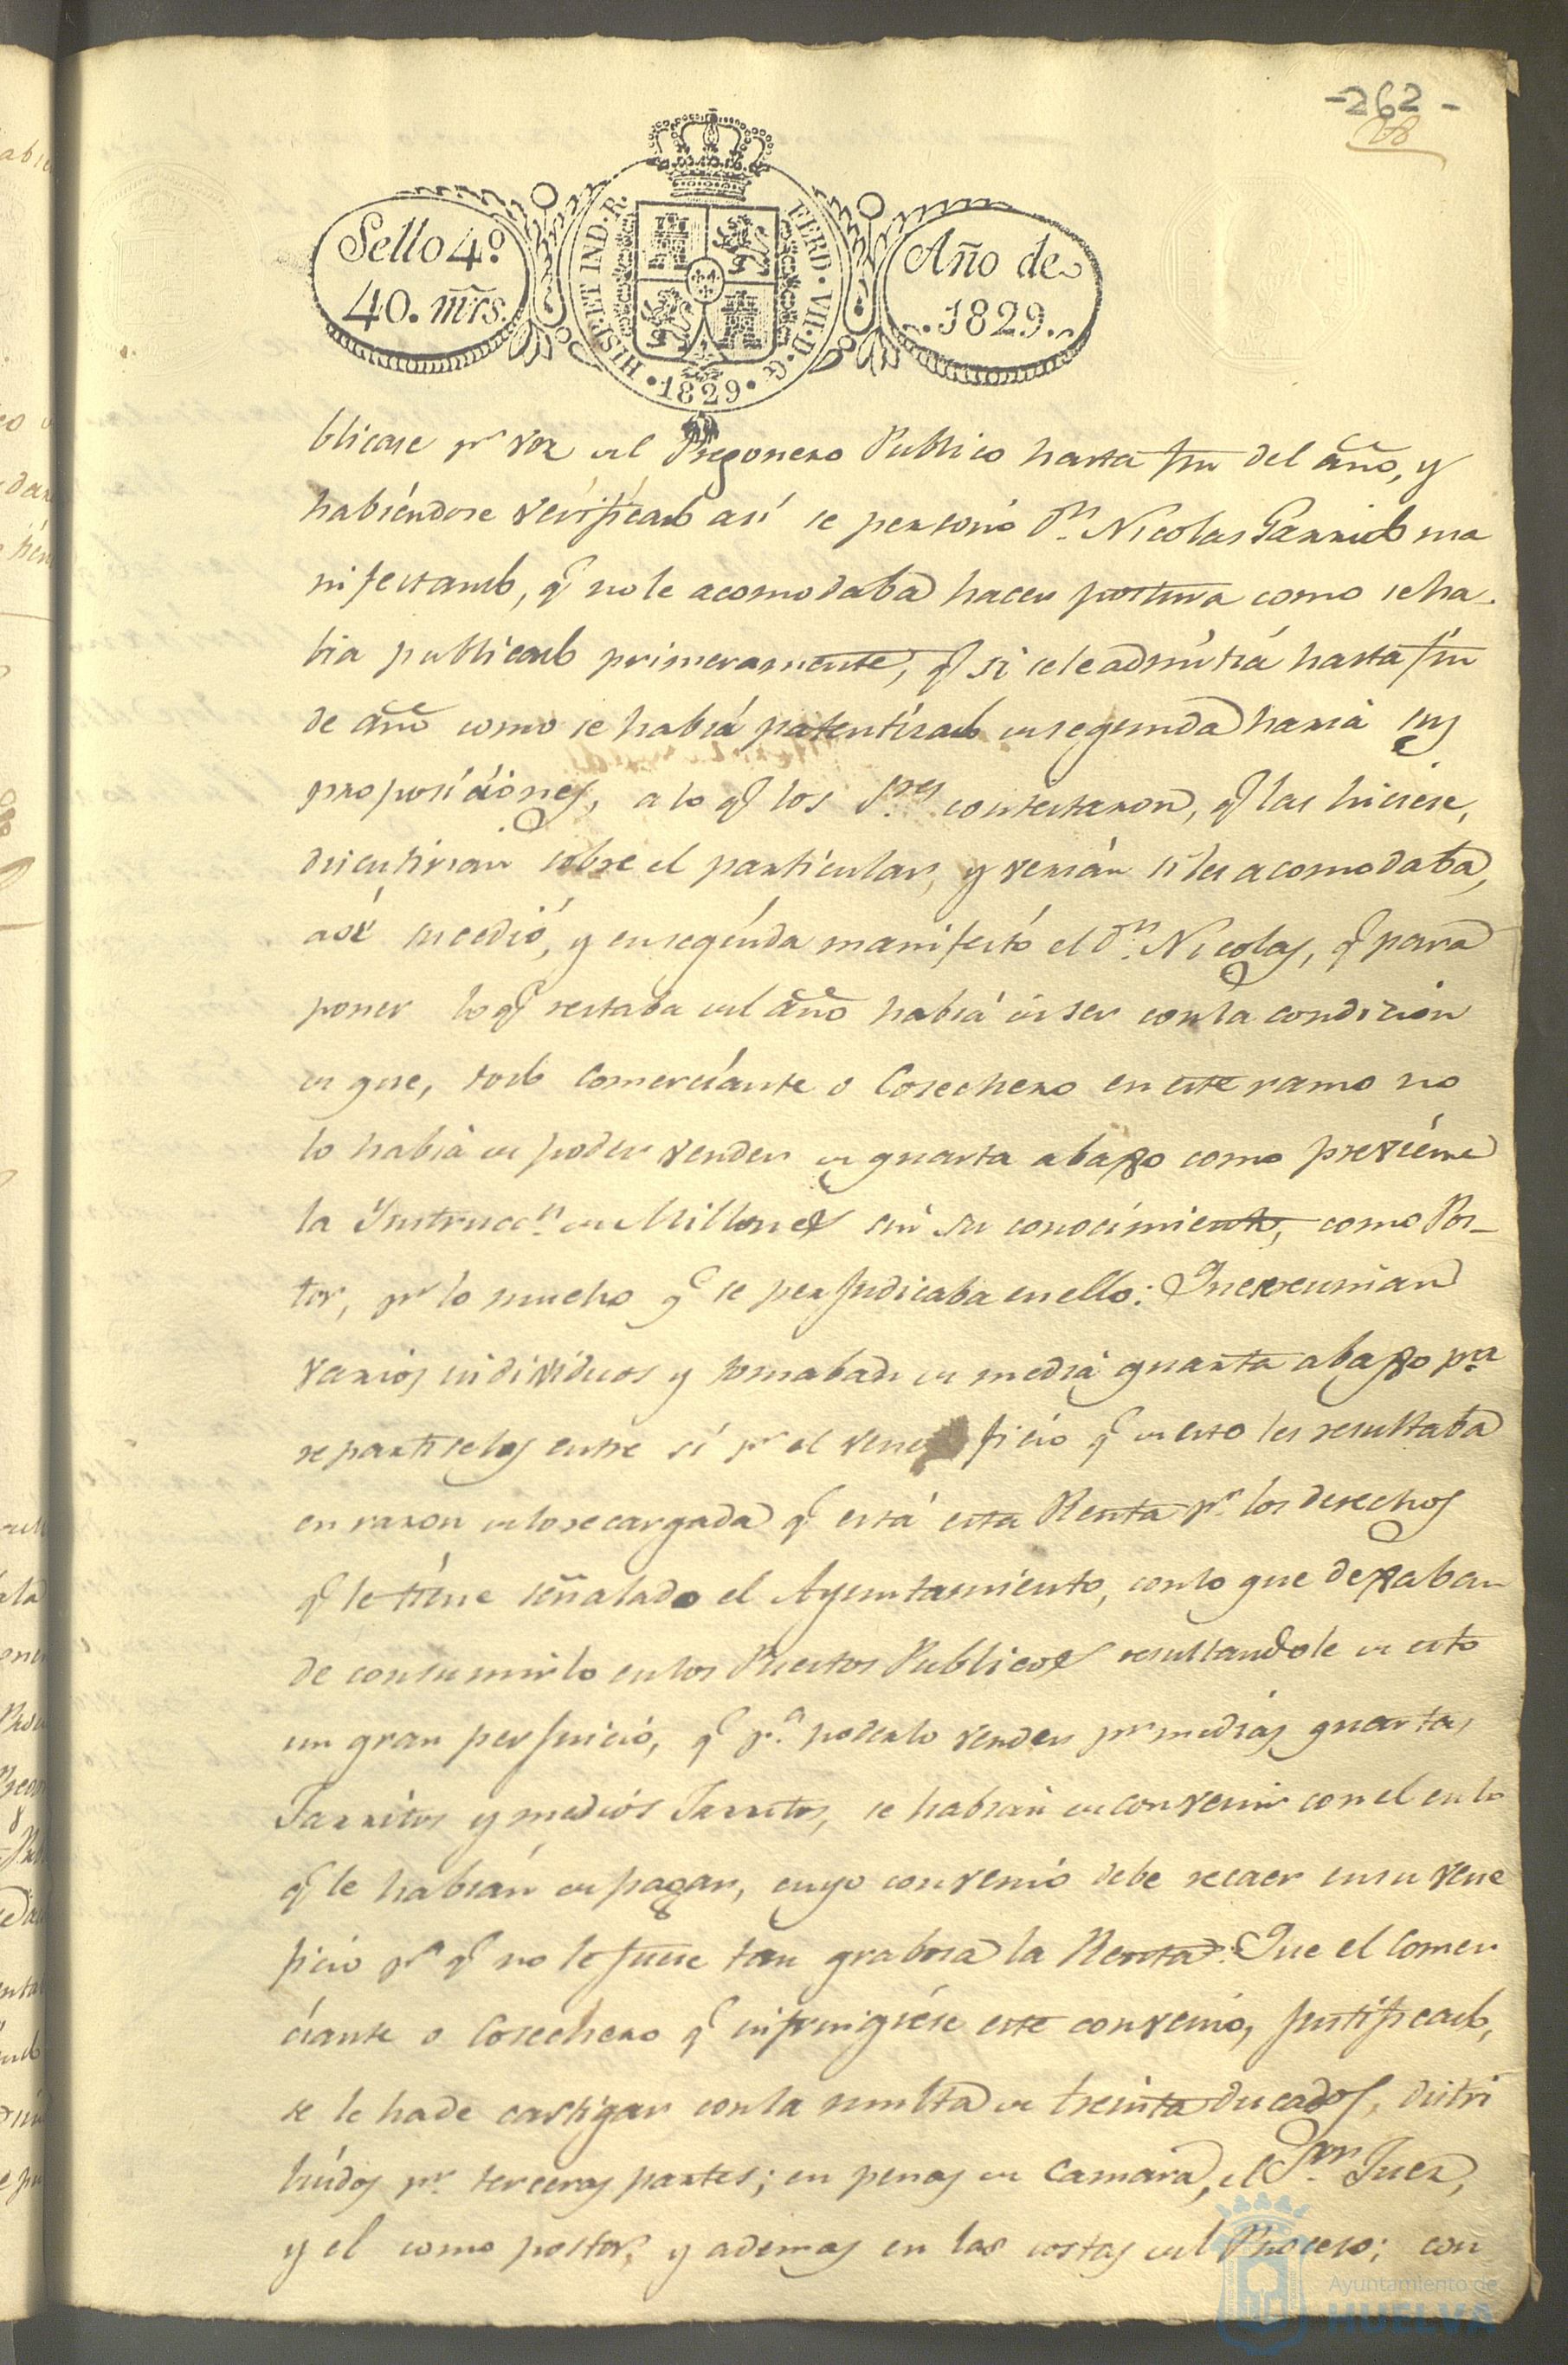 -262-
Sello 4º
40. mrs.
HISP. ET IND. R.
FERD. VII. D. G.
1829
Año de
1829.
blicase pr voz del Pregonero Publico hasta fin del año, y
habiéndose verificado así se personó Dn Nicolas Garrido ma
nifestando, q no le acomodaba hacer postura como se ha-
bia publicado primeramente, q si se le admitía hasta fin
de año como se habia patentizado en segunda haria sus
proposiciones, a lo q los Sres contestaron, q las hiciese,
discutirian sobre el particular, y verian si les acomodaba,
asi sucedió, y en seguida manifestó el Dn Nicolas, q para
poner lo q restaba del año habia de ser con la condicion
de que, todo Comerciante o Cosechero en este ramo no
lo habia de poder vender de quarta abaxo como previene
la Instruccn de Millones sin su conocimiento, como Pos-
tor, pr lo mucho q se perjudicaba en ello: Que se reunian
varios individuos y tomaban de media quarta abaxo pra
repartirselos entre sí pr el veneficio q de esto les resultaba
en razon de lo recargada q está esta Renta pr los derechos
q le tiene señalado el Ayuntamiento, con lo que dexaban
de consumirlo en los Puestos Publicos resultandole de esto
un gran perjuicio, q pa poderlo vender pr medias quartas,
Jarritos y medios Jarritos, se habian de convenir con el en lo
q le habian de pagar, cuyo convenio debe recaer en su vene
ficio pa q no le fuese tan grabosa la Renta: Que el Comer
ciante o Cosechero q infringiese este convenio, justificado,
se le ha de castigar con la multa de treinta ducados, distri
buidos pr terceras partes; en penas de Camara, el Sor Juez,
y el como postor, y ademas en las costas del Proceso; con
Ayuntamiento de
HUELVA